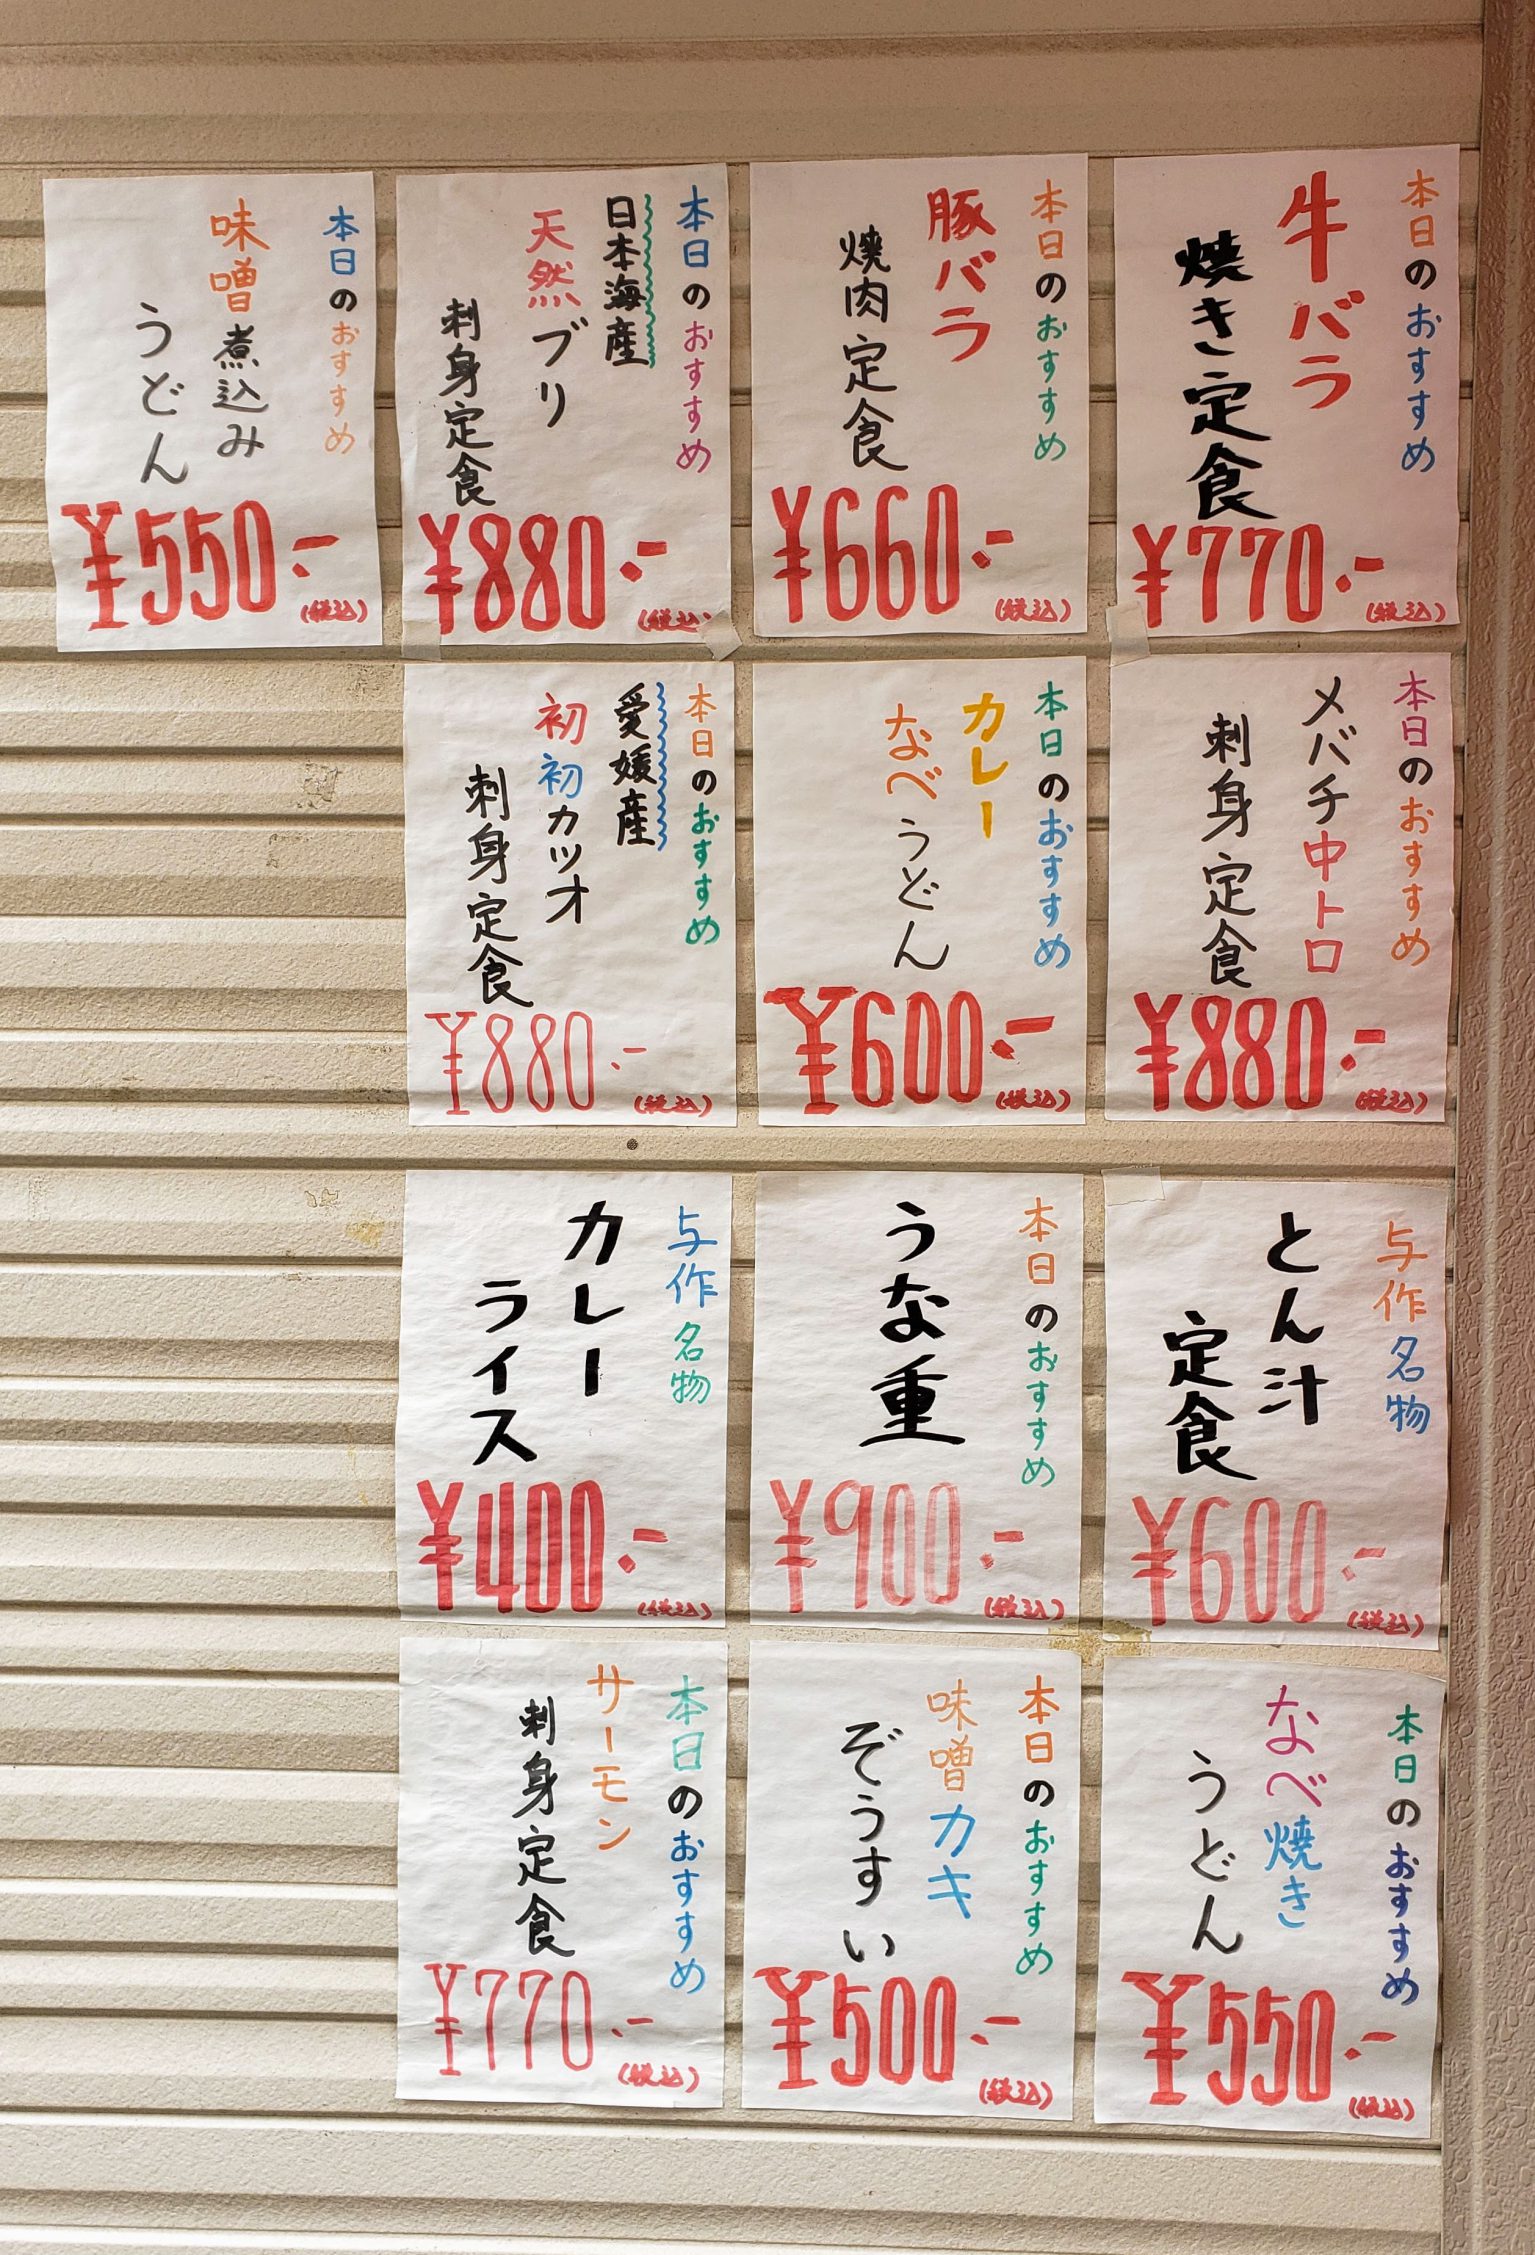 本日のおすすめ
牛バラ
焼き定食
¥770.-
(税込)
本日のおすすめ
豚バラ
焼肉定食
¥660.-
(税込)
本日のおすすめ
日本海産
天然ブリ
刺身定食
¥880.-
(税込)
本日のおすすめ
味噌煮込み
うどん
¥550.-
(税込)
本日のおすすめ
メバチ中トロ
刺身定食
¥880.-
(税込)
本日のおすすめ
カレー
なべ
うどん
¥600.-
(税込)
本日のおすすめ
愛媛産
初初カツオ
刺身定食
¥880.-
(税込)
与作名物
とん汁
定食
¥600.-
(税込)
本日のおすすめ
うな重
¥900.-
(税込)
与作名物
カレー
ライス
¥400.-
(税込)
本日のおすすめ
なべ焼き
うどん
¥550.-
(税込)
本日のおすすめ
味噌カキ
ぞうすい
¥500.-
(税込)
本日のおすすめ
サーモン
刺身定食
¥770.-
(税込)